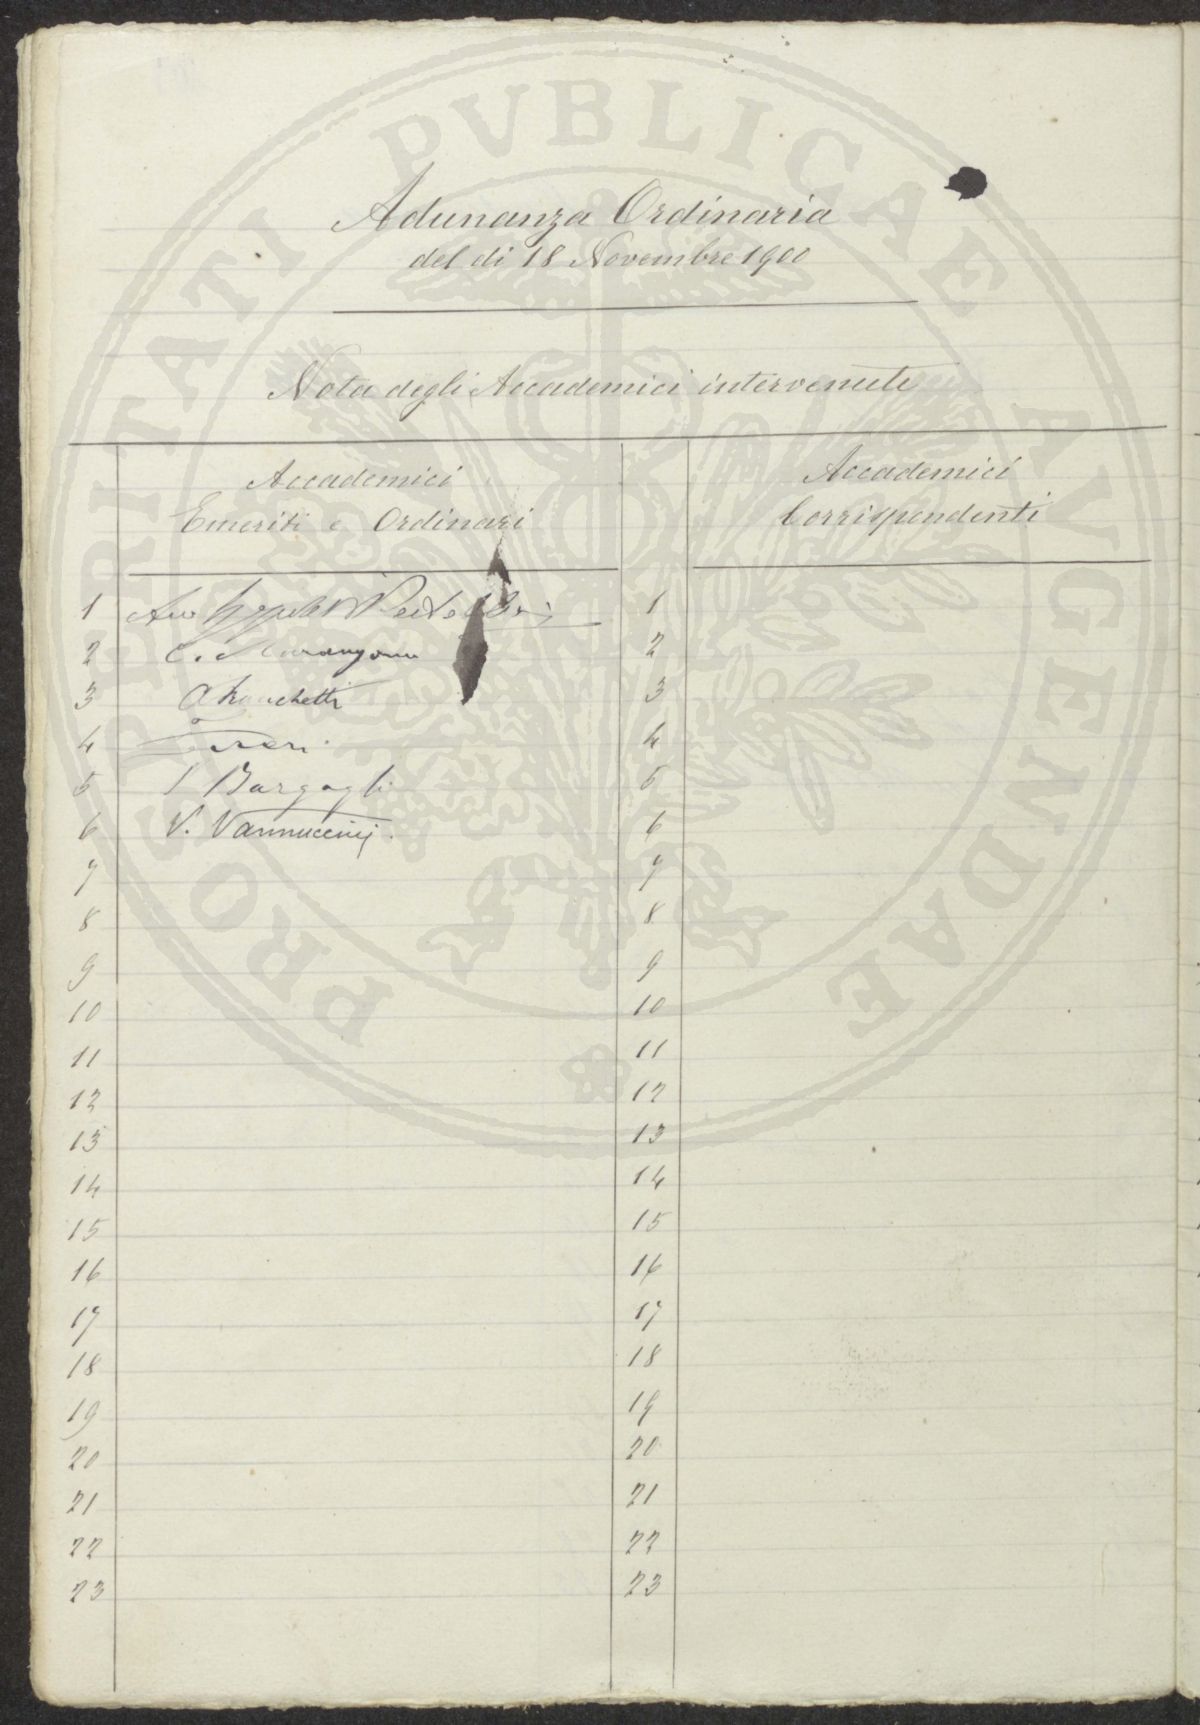 PROSPERITATI PVBLICAE AVGENDAE
Adunanza Ordinaria
del di 18 Novembre 1900
Nota degli Accademici intervenuti
Accademici
Emeriti e Ordinari
Accademici
Corrispendenti
1
1
2 C. Marangoni
2
3 A Franchetti
3
4
4
5 Bargagli
5
6 V. Vannuccinj.
6
7
7
8
8
9
9
10
10
11
11
12
12
13
13
14
14
15
15
16
16
17
17
18
18
19
19
20
20
21
21
22
22
23
23